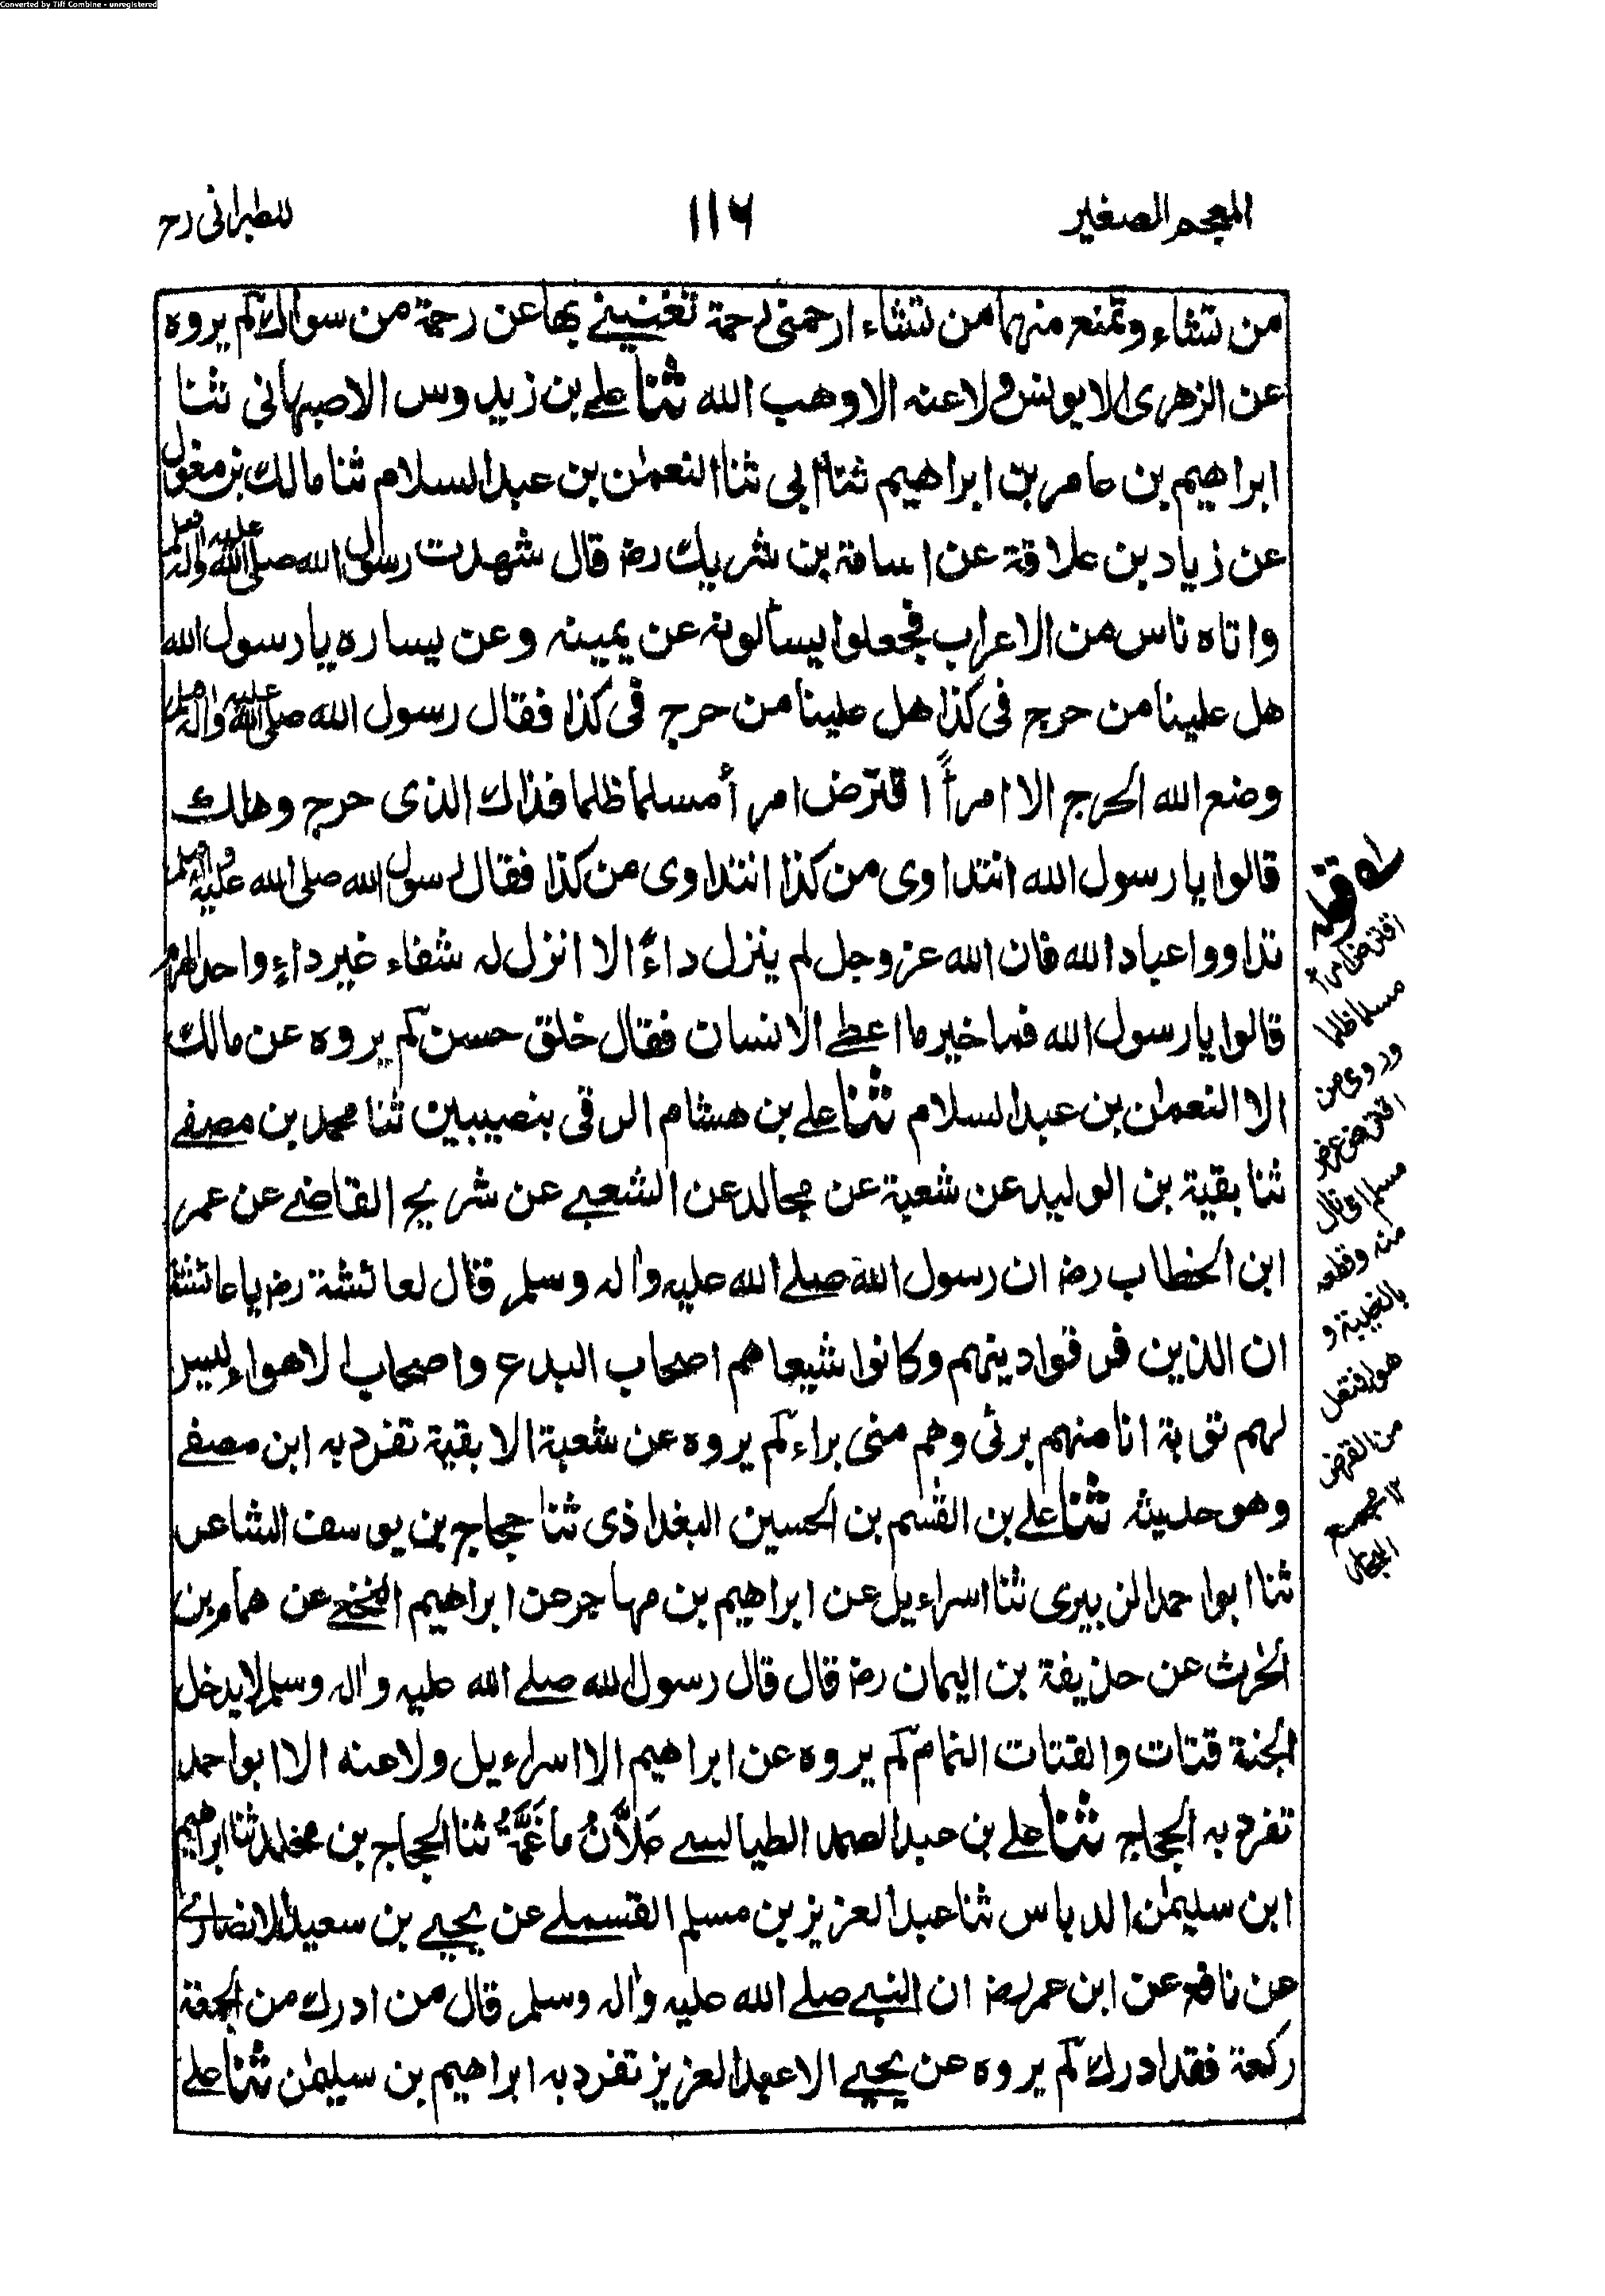 Converted by Tiff Combine - unregistered
المعجم الصغير ١١٦ للطبرانى رح
من تشاء وتمنع منهما من تشاء ارحمنى رحمة تغنينے بها عن رحمة من سواك لم يروه
عن الزهرى الا يونس ولا عنه الا وهب الله ثنا علے بن زيد وس الاصبهانى ثنا
ابراهيم بن عامر بن ابراهيم ثنا ابى ثنا النعمٰن بن عبد السلام ثنا مالك بن مغول
عن زياد بن علاقة عن اسامة بن شريك رضـ قال شهدت رسول الله صلى الله عليه واٰله وسلم
واتاه ناس من الاعراب فجعلوا يسألونه عن يمينه وعن يساره يا رسول الله
هل علينا من حرج فى كذا هل علينا من حرج فى كذا فقال رسول الله صلى الله عليه واٰله وسلم
وضع الله الحرج الا امرأً اقترض امرأً مسلما ظلما فذاك الذى حرج وهلك
قالوا يا رسول الله انتداوى من كذا انتداوى من كذا فقال رسول الله صلى الله عليه واٰله وسلم
تداووا عباد الله فان الله عز وجل لم ينزل داءً الا انزل له شفاء غير داءٍ واحد الهرم
قالوا يا رسول الله فما خير ما اعطے الانسان فقال خلق حسن لم يروه عن مالك
الا النعمٰن بن عبد السلام ثنا علے بن هشام الرقى بنصيبين ثنا محمد بن مصفے
ثنا بقية بن الوليد عن شعبة عن مجالد عن الشعبے عن شريح القاضے عن عمر
ابن الخطاب رضـ ان رسول الله صلے الله عليه واٰله وسلم قال لعائشة رضـ يا عائشة
ان الذين فرقوا دينهم وكانوا شيعا هم اصحاب البدع واصحاب الاهواء ليس
لهم توبة انا منهم برئى وهم منى براء لم يروه عن شعبة الا بقية تفرد به ابن مصفے
وهو حديثه ثنا علے بن القٰسم بن الحسين البغداذى ثنا حجاج بن يوسف الشاعر
ثنا ابو احمد الزبيرى ثنا اسراءيل عن ابراهيم بن مهاجر عن ابراهيم النخعے عن همام بن
الحٰرث عن حذيفة بن اليمان رضـ قال قال رسول الله صلے الله عليه واٰله وسلم لا يدخل
الجنة قتات والقتات النمام لم يروه عن ابراهيم الا اسراءيل ولا عنه الا ابو احمد
تفرد به الحجاج ثنا علے بن عبد الصمد الطيالسے عَلَّانُ مَا غَمَّهُ ثنا الحجاج بن مخلد ثنا ابراهيم
ابن سليمٰن الدباس ثنا عبد العزيز بن مسلم القسملے عن يحيے بن سعيد الانصارے
عن نافع عن ابن عمر رضـ ان النبے صلے الله عليه واٰله وسلم قال من ادرك من الجمعة
ركعة فقد ادرك لم يروه عن يحيے الا عبد العزيز تفرد به ابراهيم بن سليمٰن ثنا علے
قوله
اقترض امرأ
مسلما ظلما
وروى من
اقترض عرض
مسلم اى نال
منه وقطعه
بالغيبة و
هو افتعل
من القرض
١٢ مجمع
البحار